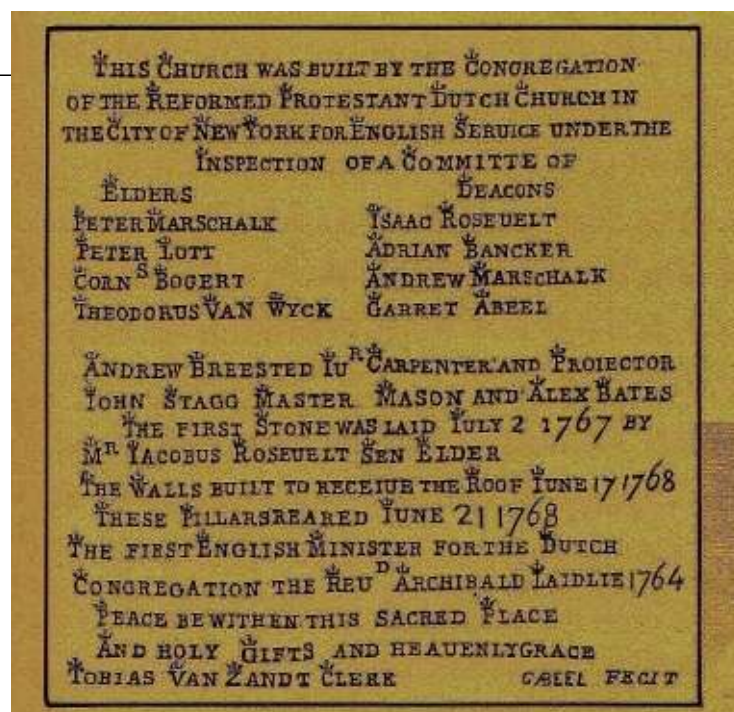 THIS CHURCH WAS BUILT BY THE CONGREGATION
OF THE REFORMED PROTESTANT DUTCH CHURCH IN
THE CITY OF NEW YORK FOR ENGLISH SERUICE UNDER THE
INSPECTION OF A COMMITTE OF
ELDERS DEACONS
PETER MARSCHALK ISAAC ROSEUELT
PETER LOTT ADRIAN BANCKER
CORN S BOGERT ANDREW MARSCHALK
THEODORUS VAN WYCK GARRET ABEEL
ANDREW BREESTED IU R CARPENTER AND PROIECTOR
IOHN STAGG MASTER MASON AND ALEX BATES
THE FIRST STONE WAS LAID IULY 2 1767 BY
MR IACOBUS ROSEUELT SEN ELDER
THE WALLS BUILT TO RECEIUE THE ROOF IUNE 17 1768
THESE PILLARS REARED IUNE 21 1768
THE FIRST ENGLISH MINISTER FOR THE DUTCH
CONGREGATION THE REU D ARCHIBALD LAIDLIE 1764
PEACE BE WITHEN THIS SACRED PLACE
AND HOLY GIFTS AND HEAUENLY GRACE
TOBIAS VAN ZANDT CLERK GABEEL FECIT